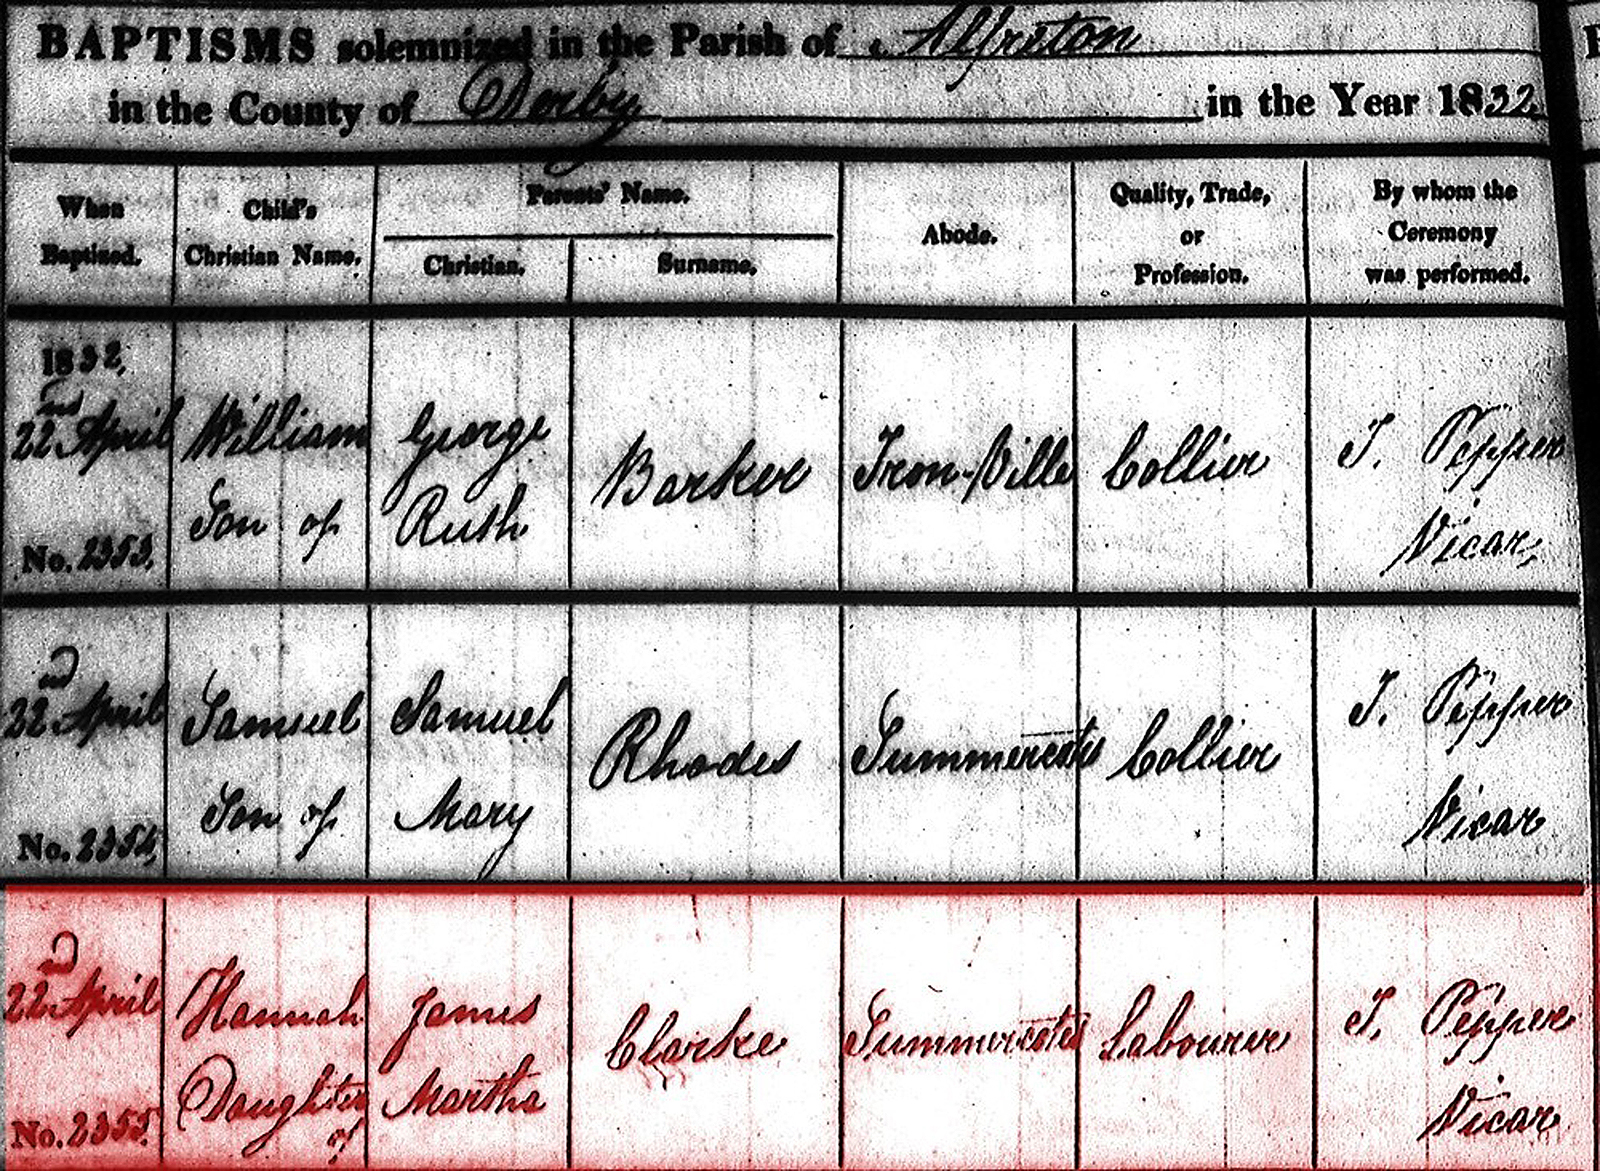 BAPTISMS solemnized in the Parish of Alfreton
in the County of Derby in the Year 1832
When Baptized.
Child's Christian Name.
Parents' Name.
Christian.
Surname.
Abode.
Quality, Trade, or Profession.
By whom the Ceremony was performed.
1832,
22nd April
No. 2353.
William
Son of
George
Ruth
Barker
Iron-Ville
Collier
T. Pepper
Vicar,
22nd April
No. 2354,
Samuel
Son of
Samuel
Mary
Rhodes
Summercotes
Collier
T. Pepper
Vicar
22nd April
No. 2355.
Hannah
Daughter
of
James
Martha
Clarke
Summercotes
Labourer
T. Pepper
Vicar